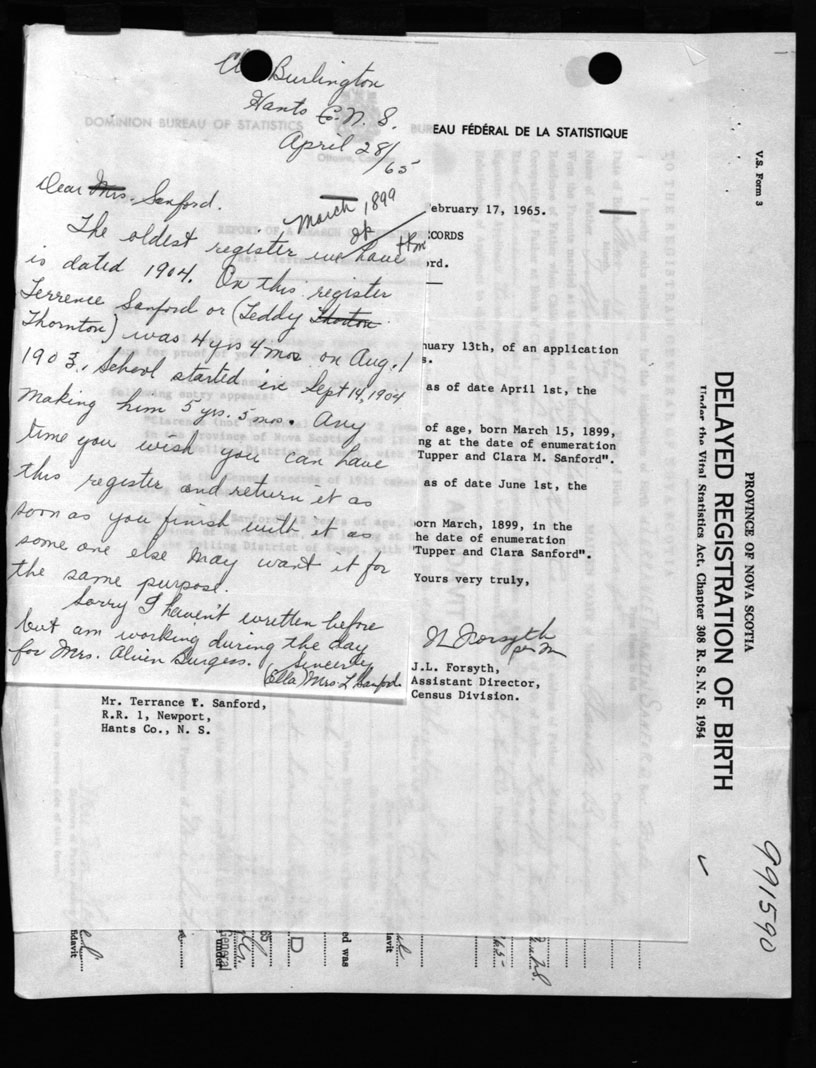 Burlington
Hants Co. N. S.
April 28/65
Dear Mrs. Sanford.
March 1899
The oldest register we have
is dated 1904. On this register
Terrence Sanford or (Teddy Thorton
Thornton) was 4 yrs 4 mos on Aug. 1
1903. School started in Sept 14, 1904
making him 5 yrs. 5 mos. Any
time you wish you can have
this register and return it as
soon as you finish with it as
some one else may want it for
the same purpose.
Sorry I haven't written before
but am working during the day
for Mrs. Alvin Burgess. Sincerely
(Ella) Mrs. L Sanford
DOMINION BUREAU OF STATISTICS
EAU FÉDÉRAL DE LA STATISTIQUE
ebruary 17, 1965.
CORDS
rd.
nuary 13th, of an application
s.
as of date April 1st, the
of age, born March 15, 1899,
ng at the date of enumeration
Tupper and Clara M. Sanford".
as of date June 1st, the
orn March, 1899, in the
he date of enumeration
"Tupper and Clara Sanford".
Yours very truly,
J.L. Forsyth,
Assistant Director,
Census Division.
Mr. Terrance T. Sanford,
R.R. 1, Newport,
Hants Co., N. S.
V.S. Form 3
PROVINCE OF NOVA SCOTIA
DELAYED REGISTRATION OF BIRTH
Under the Vital Statistics Act, Chapter 308 R. S. N. S. 1954
991590
ed was
General
fidavit